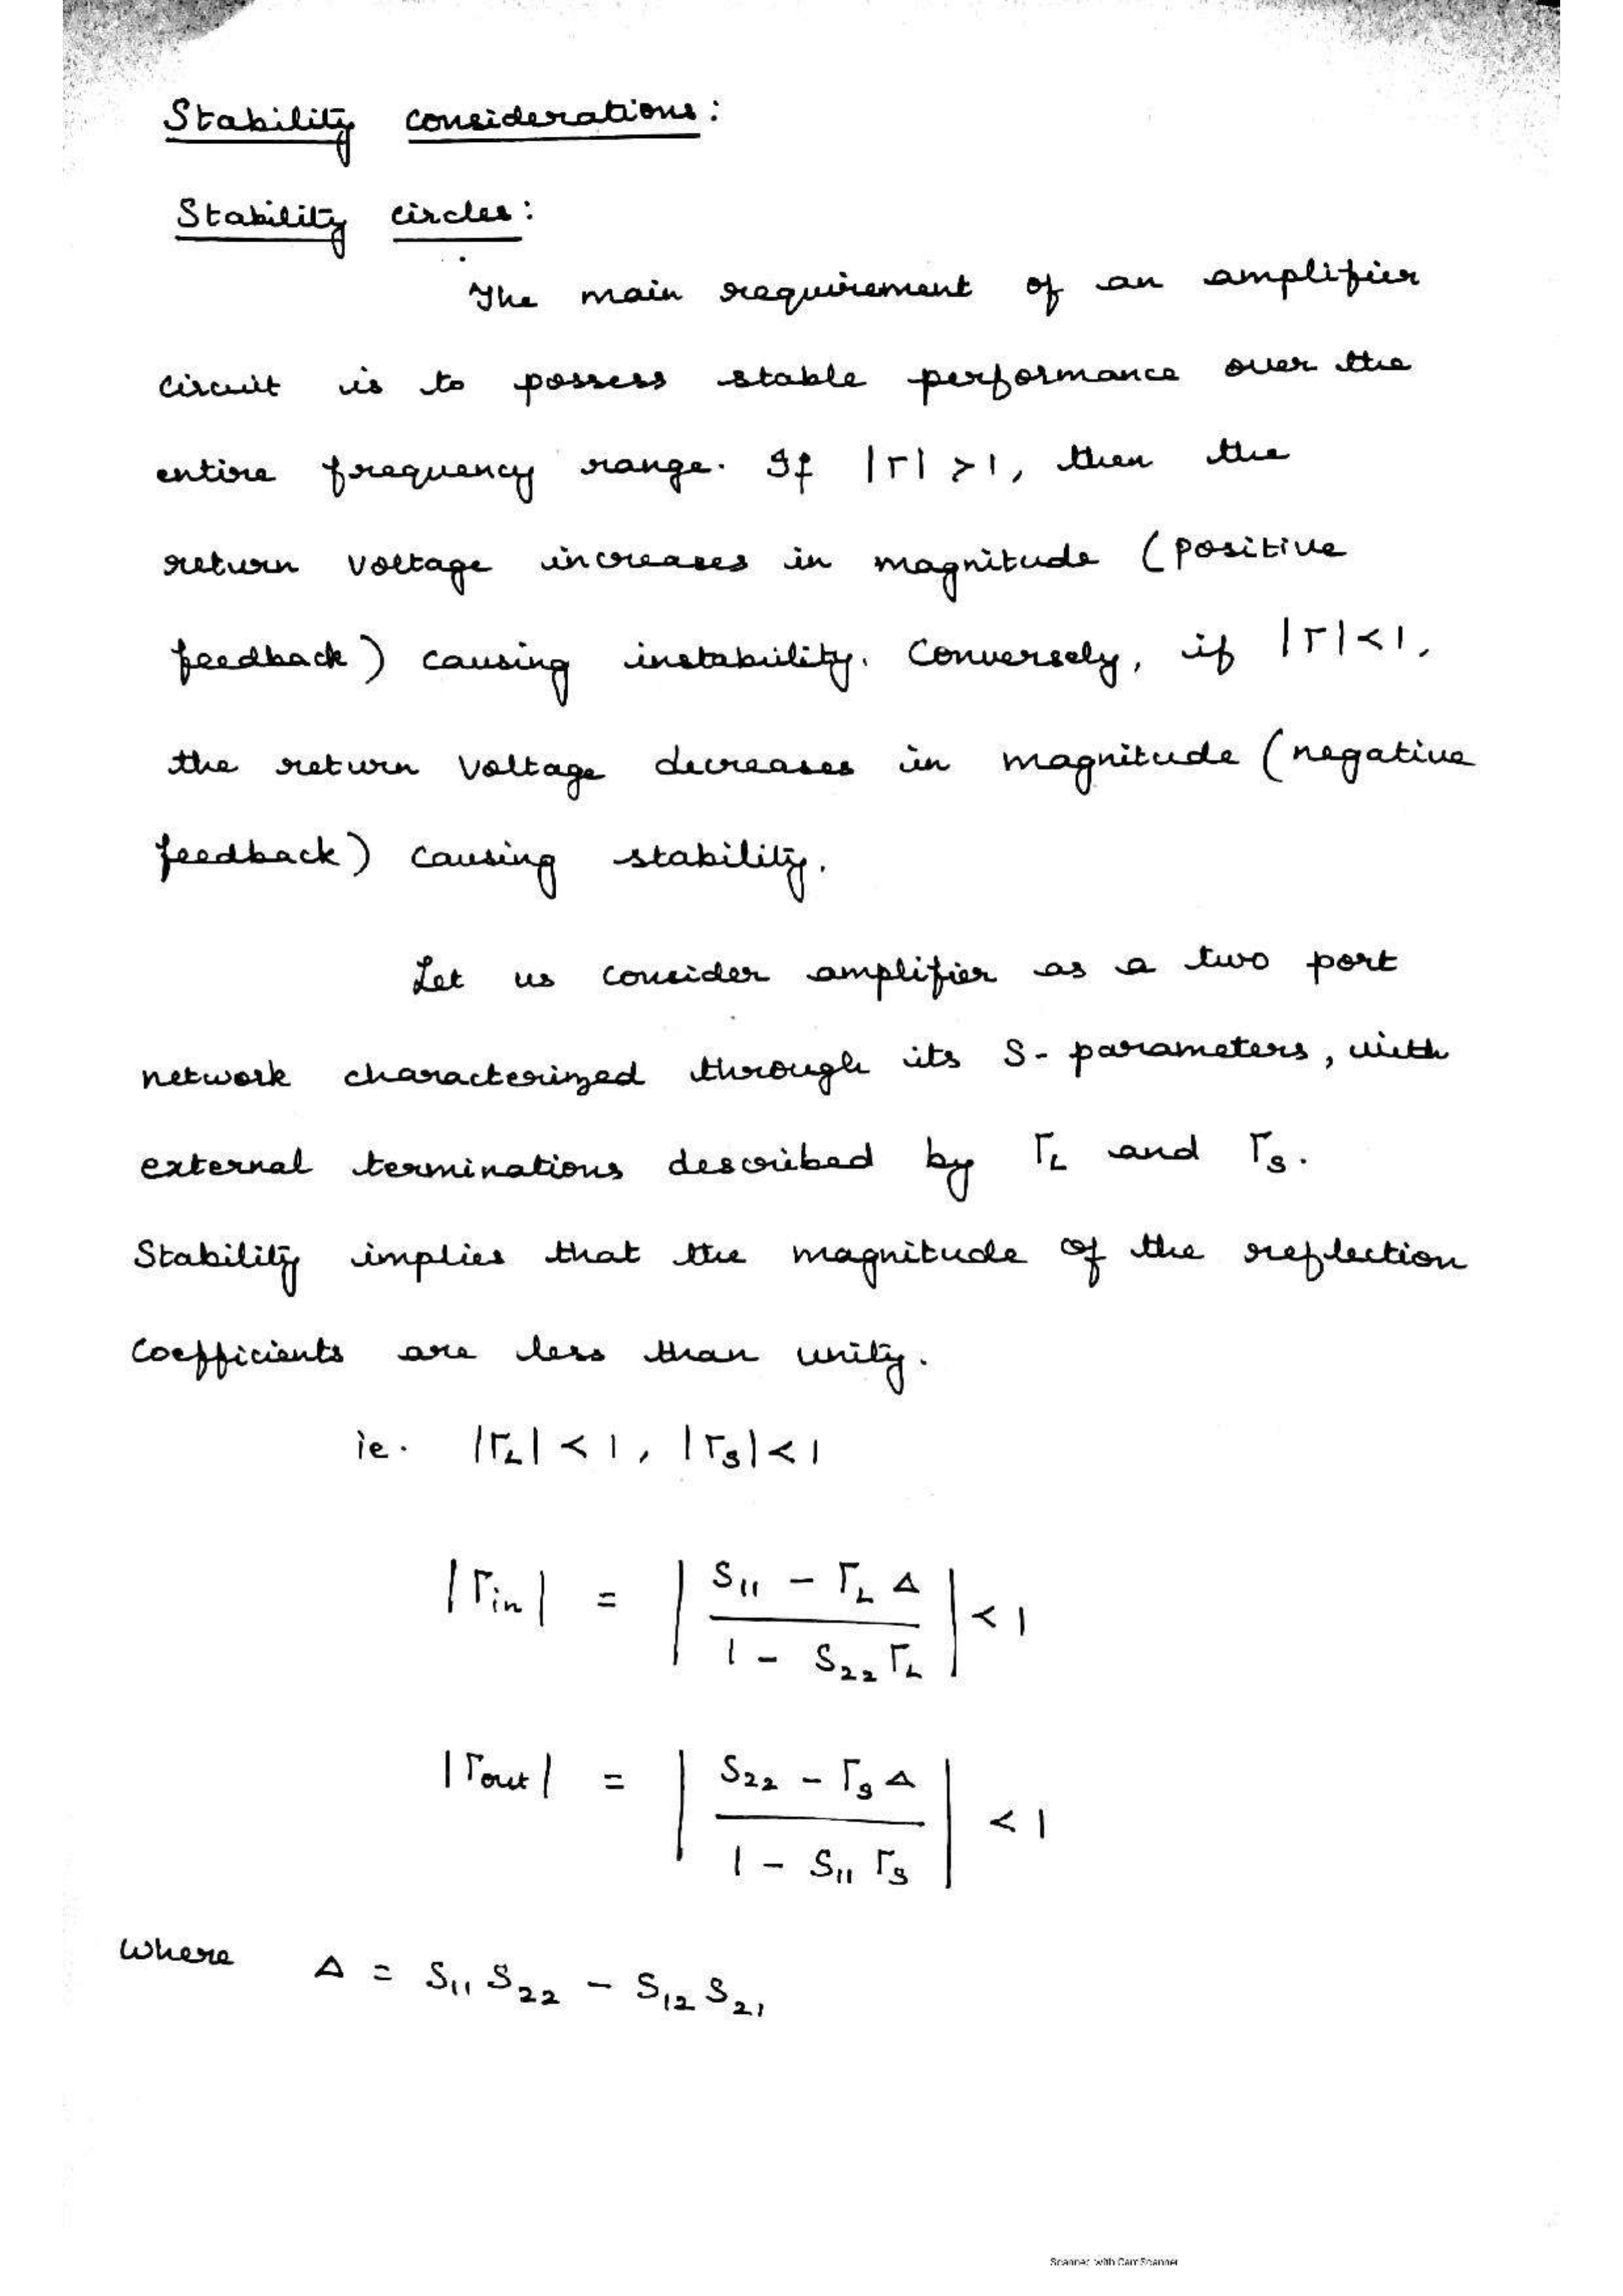 Stability considerations:
Stability circles:
The main requirement of an amplifier
circuit is to possess stable performance over the
entire frequency range. If |Γ| > 1, then the
return voltage increases in magnitude (positive
feedback) causing instability. Conversely, if |Γ| < 1,
the return voltage decreases in magnitude (negative
feedback) causing stability.
Let us consider amplifier as a two port
network characterized through its S-parameters, with
external terminations described by Γ_L and Γ_S.
Stability implies that the magnitude of the reflection
coefficients are less than unity.
ie. |Γ_L| < 1, |Γ_S| < 1
|Γ_in| = | (S₁₁ - Γ_L Δ) / (1 - S₂₂ Γ_L) | < 1
|Γ_out| = | (S₂₂ - Γ_S Δ) / (1 - S₁₁ Γ_S) | < 1
Where Δ = S₁₁ S₂₂ - S₁₂ S₂₁
Scanned with CamScanner